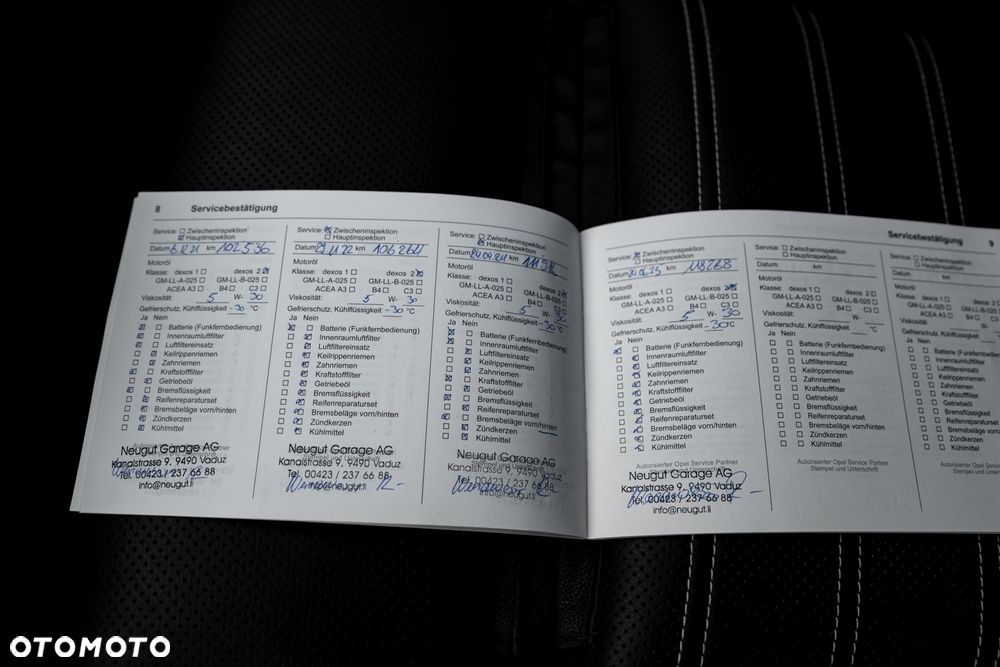 8 Servicebestätigung
Service: Zwischeninspektion
Hauptinspektion
Datum 6.12.21 km 102536
Motoröl
Klasse: dexos 1 dexos 2
GM-LL-A-025 GM-LL-B-025
ACEA A3 B4 C3
Viskosität: 5 W- 30
Gefrierschutz, Kühlflüssigkeit -30 °C
Ja Nein
Batterie (Funkfernbedienung)
Innenraumluftfilter
Luftfiltereinsatz
Keilrippenriemen
Zahnriemen
Kraftstofffilter
Getriebeöl
Bremsflüssigkeit
Reifenreparaturset
Bremsbeläge vorn/hinten
Zündkerzen
Kühlmittel
Neugut Garage AG
Kanalstrasse 9, 9490 Vaduz
Tel. 00423 / 237 66 88
info@neugut.li
Service: Zwischeninspektion
Hauptinspektion
Datum 11.22 km 106264
Motoröl
Klasse: dexos 1 dexos 2
GM-LL-A-025 GM-LL-B-025
ACEA A3 B4 C3
Viskosität: 5 W- 30
Gefrierschutz, Kühlflüssigkeit -30 °C
Ja Nein
Batterie (Funkfernbedienung)
Innenraumluftfilter
Luftfiltereinsatz
Keilrippenriemen
Zahnriemen
Kraftstofffilter
Getriebeöl
Bremsflüssigkeit
Reifenreparaturset
Bremsbeläge vorn/hinten
Zündkerzen
Kühlmittel
Neugut Garage AG
Kanalstrasse 9, 9490 Vaduz
Tel. 00423 / 237 66 88
info@neugut.li
Service: Zwischeninspektion
Hauptinspektion
Datum 24.04.24 km
Motoröl
Klasse: dexos 1 dexos 2
GM-LL-A-025 GM-LL-B-025
ACEA A3 B4 C3
Viskosität: 5 W- 30
Gefrierschutz, Kühlflüssigkeit -30 °C
Ja Nein
Batterie (Funkfernbedienung)
Innenraumluftfilter
Luftfiltereinsatz
Keilrippenriemen
Zahnriemen
Kraftstofffilter
Getriebeöl
Bremsflüssigkeit
Reifenreparaturset
Bremsbeläge vorn/hinten
Zündkerzen
Kühlmittel
Neugut Garage AG
Kanalstrasse 9, 9490 Vaduz
Tel. 00423 / 237 66 88
info@neugut.li
Servicebestätigung 9
Service: Zwischeninspektion
Hauptinspektion
Datum km 118268
Motoröl
Klasse: dexos 1 dexos 2
GM-LL-A-025 GM-LL-B-025
ACEA A3 B4 C3
Viskosität: 5 W- 30
Gefrierschutz, Kühlflüssigkeit -30 °C
Ja Nein
Batterie (Funkfernbedienung)
Innenraumluftfilter
Luftfiltereinsatz
Keilrippenriemen
Zahnriemen
Kraftstofffilter
Getriebeöl
Bremsflüssigkeit
Reifenreparaturset
Bremsbeläge vorn/hinten
Zündkerzen
Kühlmittel
Autorisierter Opel Service Partner
Neugut Garage AG
Kanalstrasse 9, 9490 Vaduz
Tel. 00423 / 237 66 88
info@neugut.li
Service: Zwischeninspektion
Hauptinspektion
Datum km
Motoröl
Klasse: dexos 1 dexos 2
GM-LL-A-025 GM-LL-B-025
ACEA A3 B4 C3
Viskosität: W-
Gefrierschutz, Kühlflüssigkeit °C
Ja Nein
Batterie (Funkfernbedienung)
Innenraumluftfilter
Luftfiltereinsatz
Keilrippenriemen
Zahnriemen
Kraftstofffilter
Getriebeöl
Bremsflüssigkeit
Reifenreparaturset
Bremsbeläge vorn/hinten
Zündkerzen
Kühlmittel
Autorisierter Opel Service Partner
Stempel und Unterschrift
Service: Zwischeninspektion
Hauptinspektion
Datum km
Motoröl
Klasse: dexos 1
GM-LL-A-025
ACEA A3
Viskosität:
Gefrierschutz, Kühlflüssigkeit
Ja Nein
Batterie (Funkfernbedienung)
Innenraumluftfilter
Luftfiltereinsatz
Keilrippenriemen
Zahnriemen
Kraftstofffilter
Getriebeöl
Bremsflüssigkeit
Reifenreparaturset
Bremsbeläge vorn/hinten
Zündkerzen
Kühlmittel
Autorisierter Opel Service
Stempel und Unterschrift
OTOMOTO